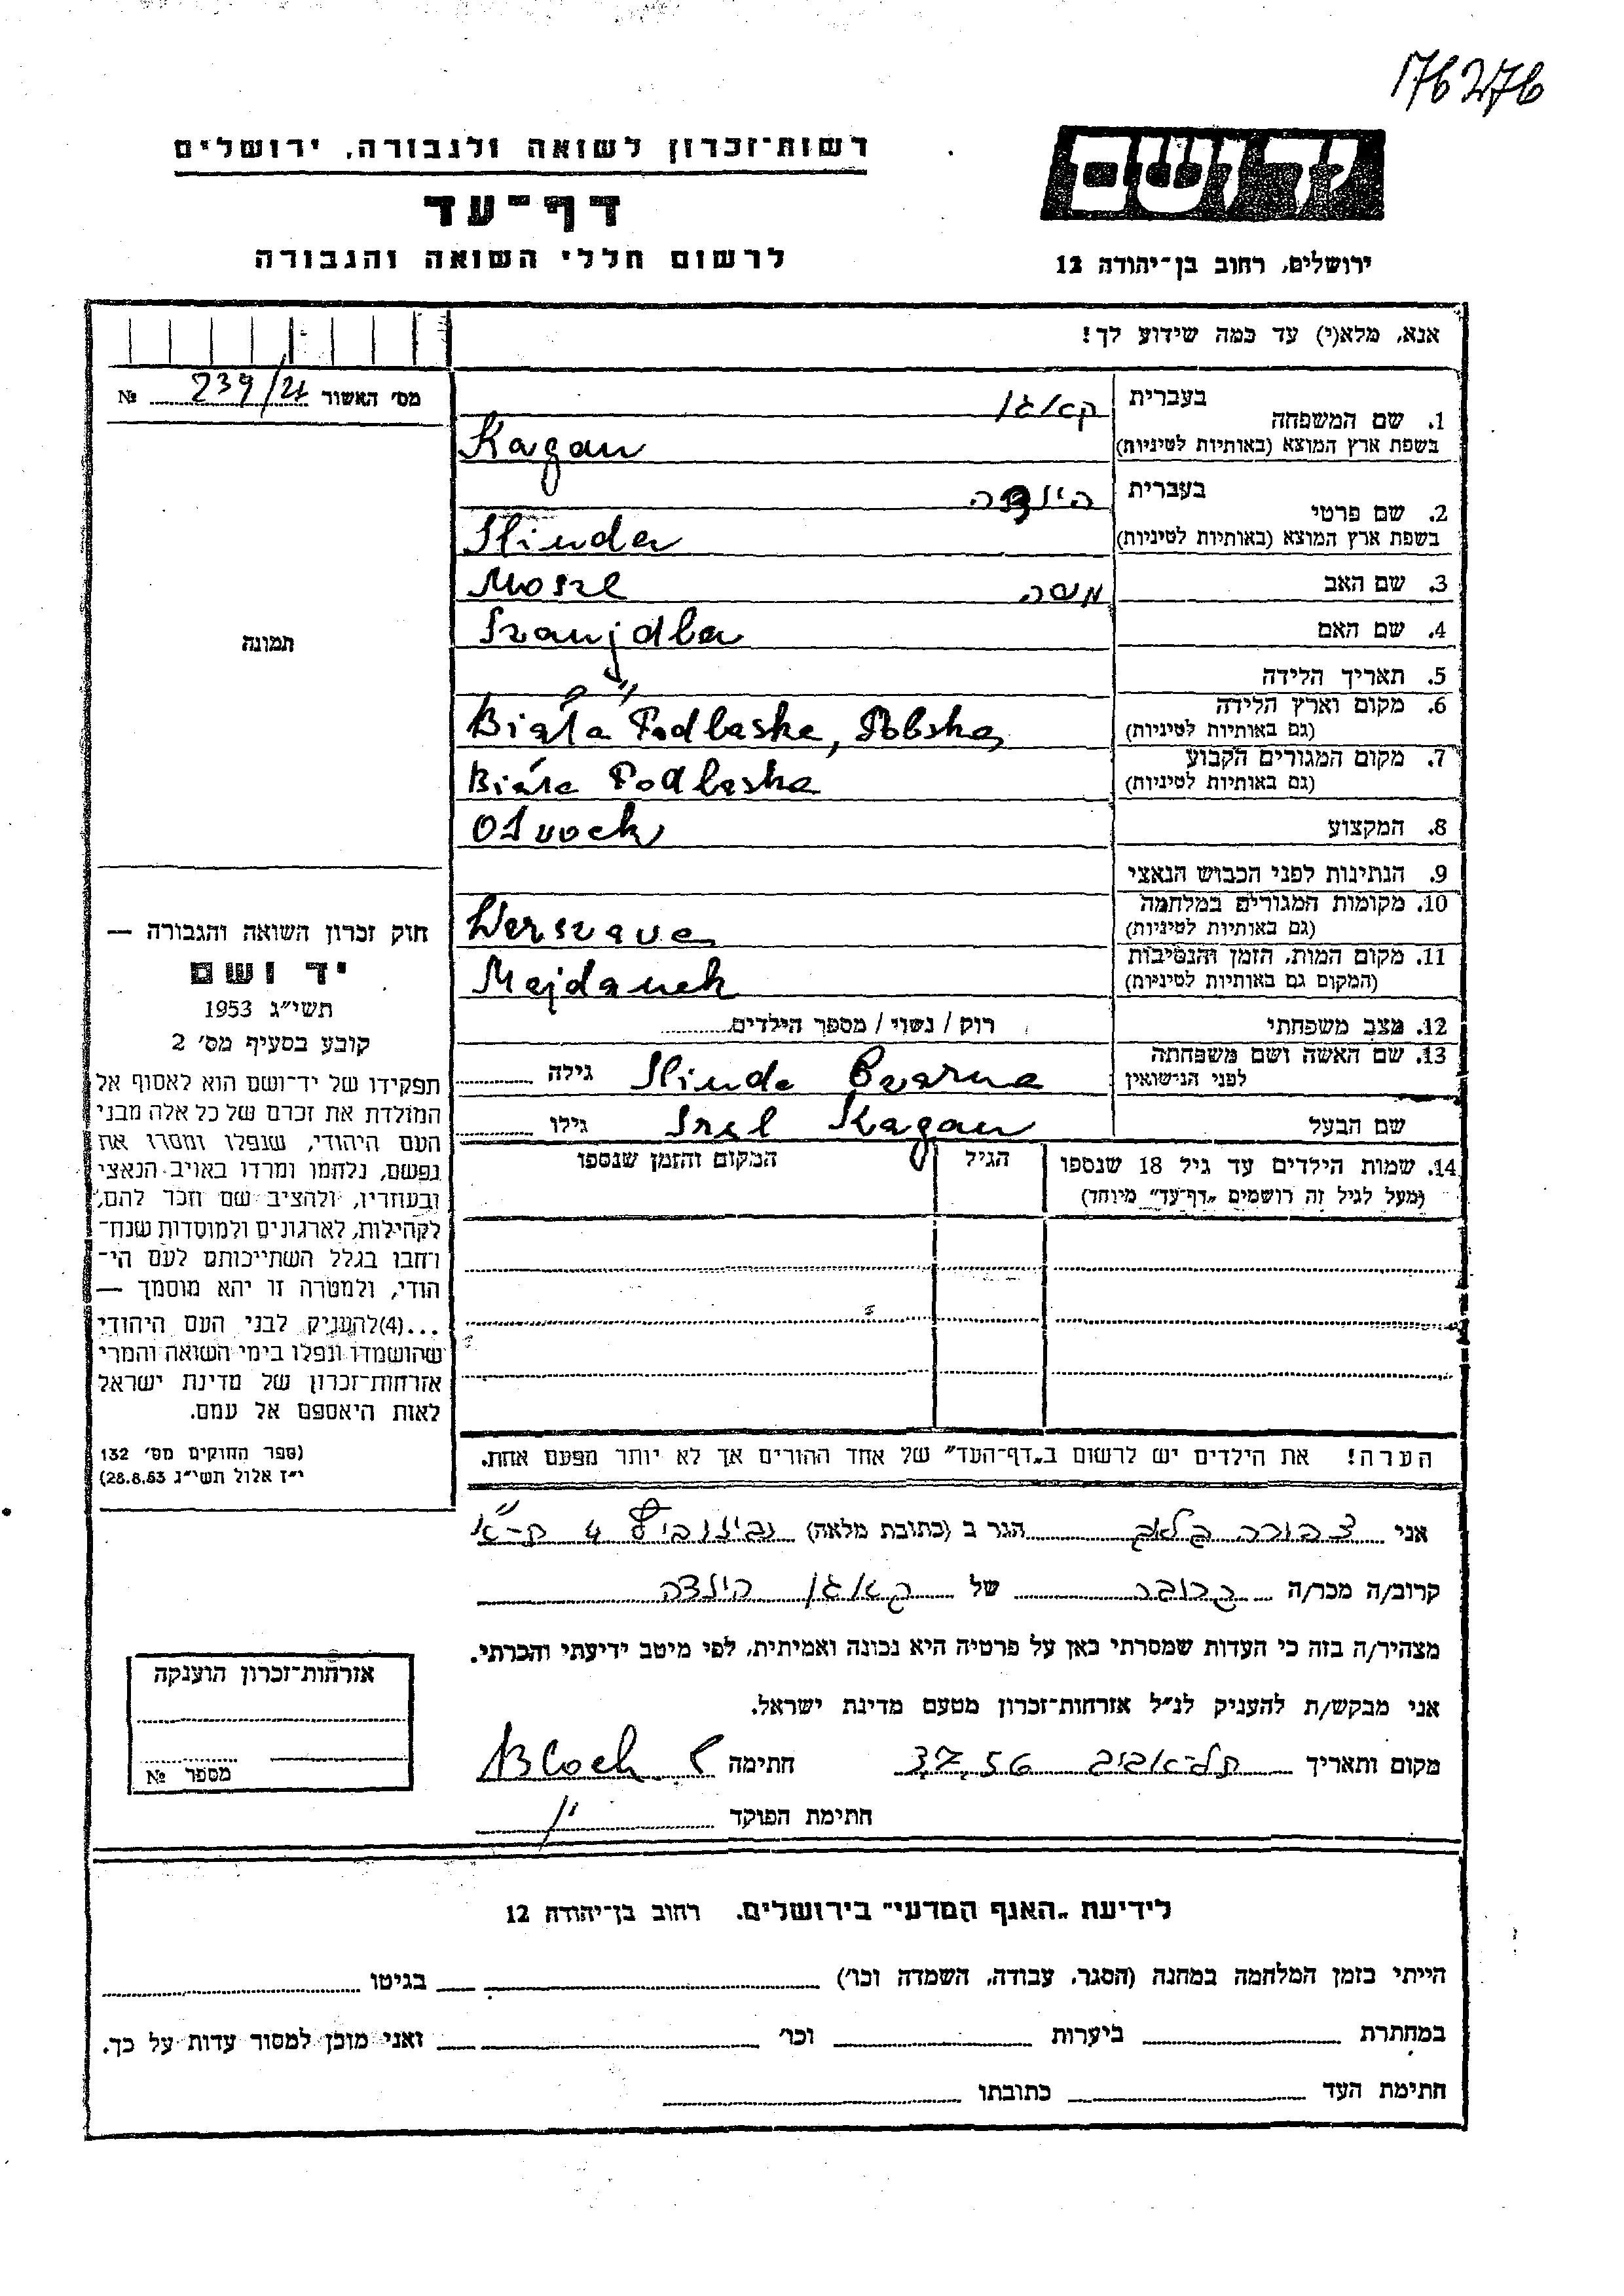 176276
רשות־זכרון לשואה ולגבורה, ירושלים
דף־עד
לרשום חללי השואה והגבורה
ידושם
ירושלים, רחוב בן־יהודה 12
אנא, מלא(י) עד כמה שידוע לך!
מס׳ האשור 239/21 №
1. שם המשפחה בעברית קאגן
בשפת ארץ המוצא (באותיות לטיניות) Kagan
2. שם פרטי בעברית
בשפת ארץ המוצא (באותיות לטיניות) Hinda
3. שם האב משה Mosze
4. שם האם Szanjdla
5. תאריך הלידה
6. מקום וארץ הלידה (גם באותיות לטיניות) Biała Podlaska, Polska
7. מקום המגורים הקבוע (גם באותיות לטיניות) Biała Podlaska
8. המקצוע
9. הנתינות לפני הכבוש הנאצי
10. מקומות המגורים במלחמה (גם באותיות לטיניות) Warszawa
11. מקום המות, הזמן והנסיבות (המקום גם באותיות לטיניות) Majdanek
12. מצב משפחתי רוק / נשוי / מספר הילדים
13. שם האשה ושם משפחתה לפני הנישואין Hinda Czarna גילה
שם הבעל Srel Kagan גילו
14. שמות הילדים עד גיל 18 שנספו הגיל המקום והזמן שנספו
(מעל לגיל זה רושמים „דף־עד״ מיוחד)
הערה! את הילדים יש לרשום ב„דף־העד״ של אחד ההורים אך לא יותר מפעם אחת.
תמונה
חוק זכרון השואה והגבורה —
יד ושם
תשי״ג 1953
קובע בסעיף מס׳ 2
תפקידו של יד־ושם הוא לאסוף אל
המולדת את זכרם של כל אלה מבני
העם היהודי, שנפלו ומסרו את
נפשם, נלחמו ומרדו באויב הנאצי
ובעוזריו, ולהציב שם וזכר להם,
לקהילות, לארגונים ולמוסדות שנח־
רבו בגלל השתייכותם לעם הי־
הודי, ולמטרה זו יהא מוסמך —
...(4) להעניק לבני העם היהודי
שהושמדו ונפלו בימי השואה והמרי
אזרחות־זכרון של מדינת ישראל
לאות היאספם אל עמם.
(ספר החוקים מס׳ 132
י״ז אלול תשי״ג 28.8.53)
אני צפורה בלאך הגר ב (כתובת מלאה) 4
קרוב/ה מכר/ה קרובה של קאגן הינדה
מצהיר/ה בזה כי העדות שמסרתי כאן על פרטיה היא נכונה ואמיתית, לפי מיטב ידיעתי והכרתי.
אני מבקש/ת להעניק לנ״ל אזרחות־זכרון מטעם מדינת ישראל.
מקום ותאריך תל־אביב 3.7.56 חתימה Bloch
חתימת הפוקד
אזרחות־זכרון הוענקה
מספר №
לידיעת „האגף המדעי״ בירושלים, רחוב בן־יהודה 12
הייתי בזמן המלחמה במחנה (הסגר, עבודה, השמדה וכו׳) בגיטו
במחתרת ביערות וכו׳ ואני מוכן למסור עדות על כך.
חתימת העד כתובתו